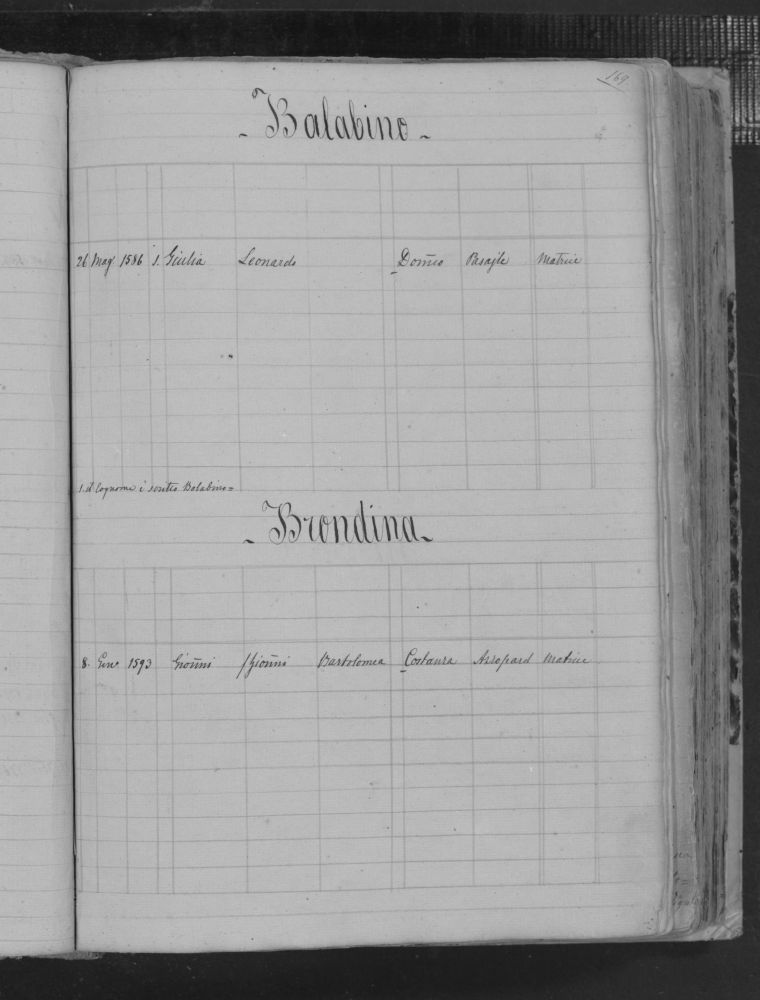 169
- Balabino -
26 Mag 1586 1. Giulia Leonardo Dom̃co Matrice
1. il Cognome è scritto Bolabino =
- Brondina -
8. Gen. 1593 Gioñni /Gioñni Bartolomea Costanza Matrice